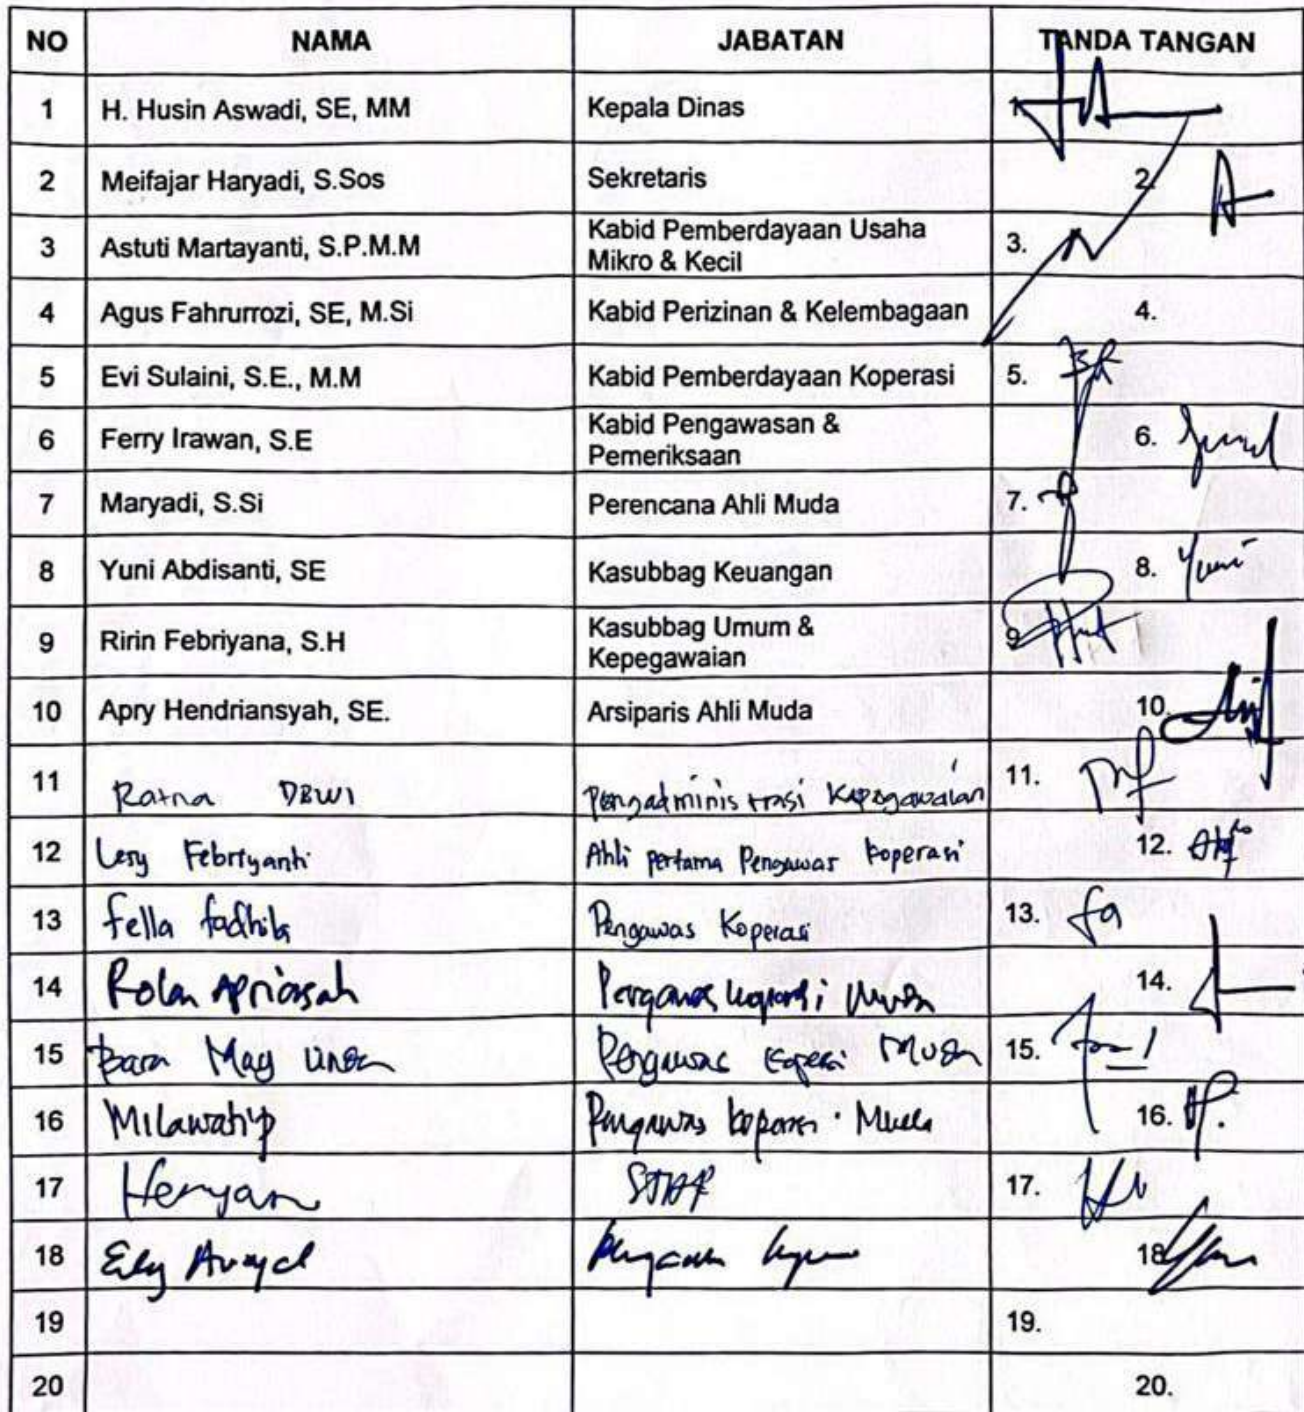 NO NAMA JABATAN TANDA TANGAN
1 H. Husin Aswadi, SE, MM Kepala Dinas 1.
2 Meifajar Haryadi, S.Sos Sekretaris 2.
3 Astuti Martayanti, S.P.M.M Kabid Pemberdayaan Usaha
Mikro & Kecil 3.
4 Agus Fahrurrozi, SE, M.Si Kabid Perizinan & Kelembagaan 4.
5 Evi Sulaini, S.E., M.M Kabid Pemberdayaan Koperasi 5.
6 Ferry Irawan, S.E Kabid Pengawasan &
Pemeriksaan 6.
7 Maryadi, S.Si Perencana Ahli Muda 7.
8 Yuni Abdisanti, SE Kasubbag Keuangan 8. Yuni
9 Ririn Febriyana, S.H Kasubbag Umum &
Kepegawaian 9.
10 Apry Hendriansyah, SE. Arsiparis Ahli Muda 10.
11 Ratna DEWI Pengadministrasi Kepegawaian 11.
12 Lesy Febriyanti Ahli pertama Pengawas Koperasi 12.
13 fella fadhila Pengawas Koperasi 13. fa
14 Rolan Apriansah Pengawas Koperasi Muda 14.
15 May Pengawas Koperasi Muda 15.
16 Milawati Pengawas koperasi Muda 16.
17 Heryan STAF 17.
18 Elly 18.
19 19.
20 20.